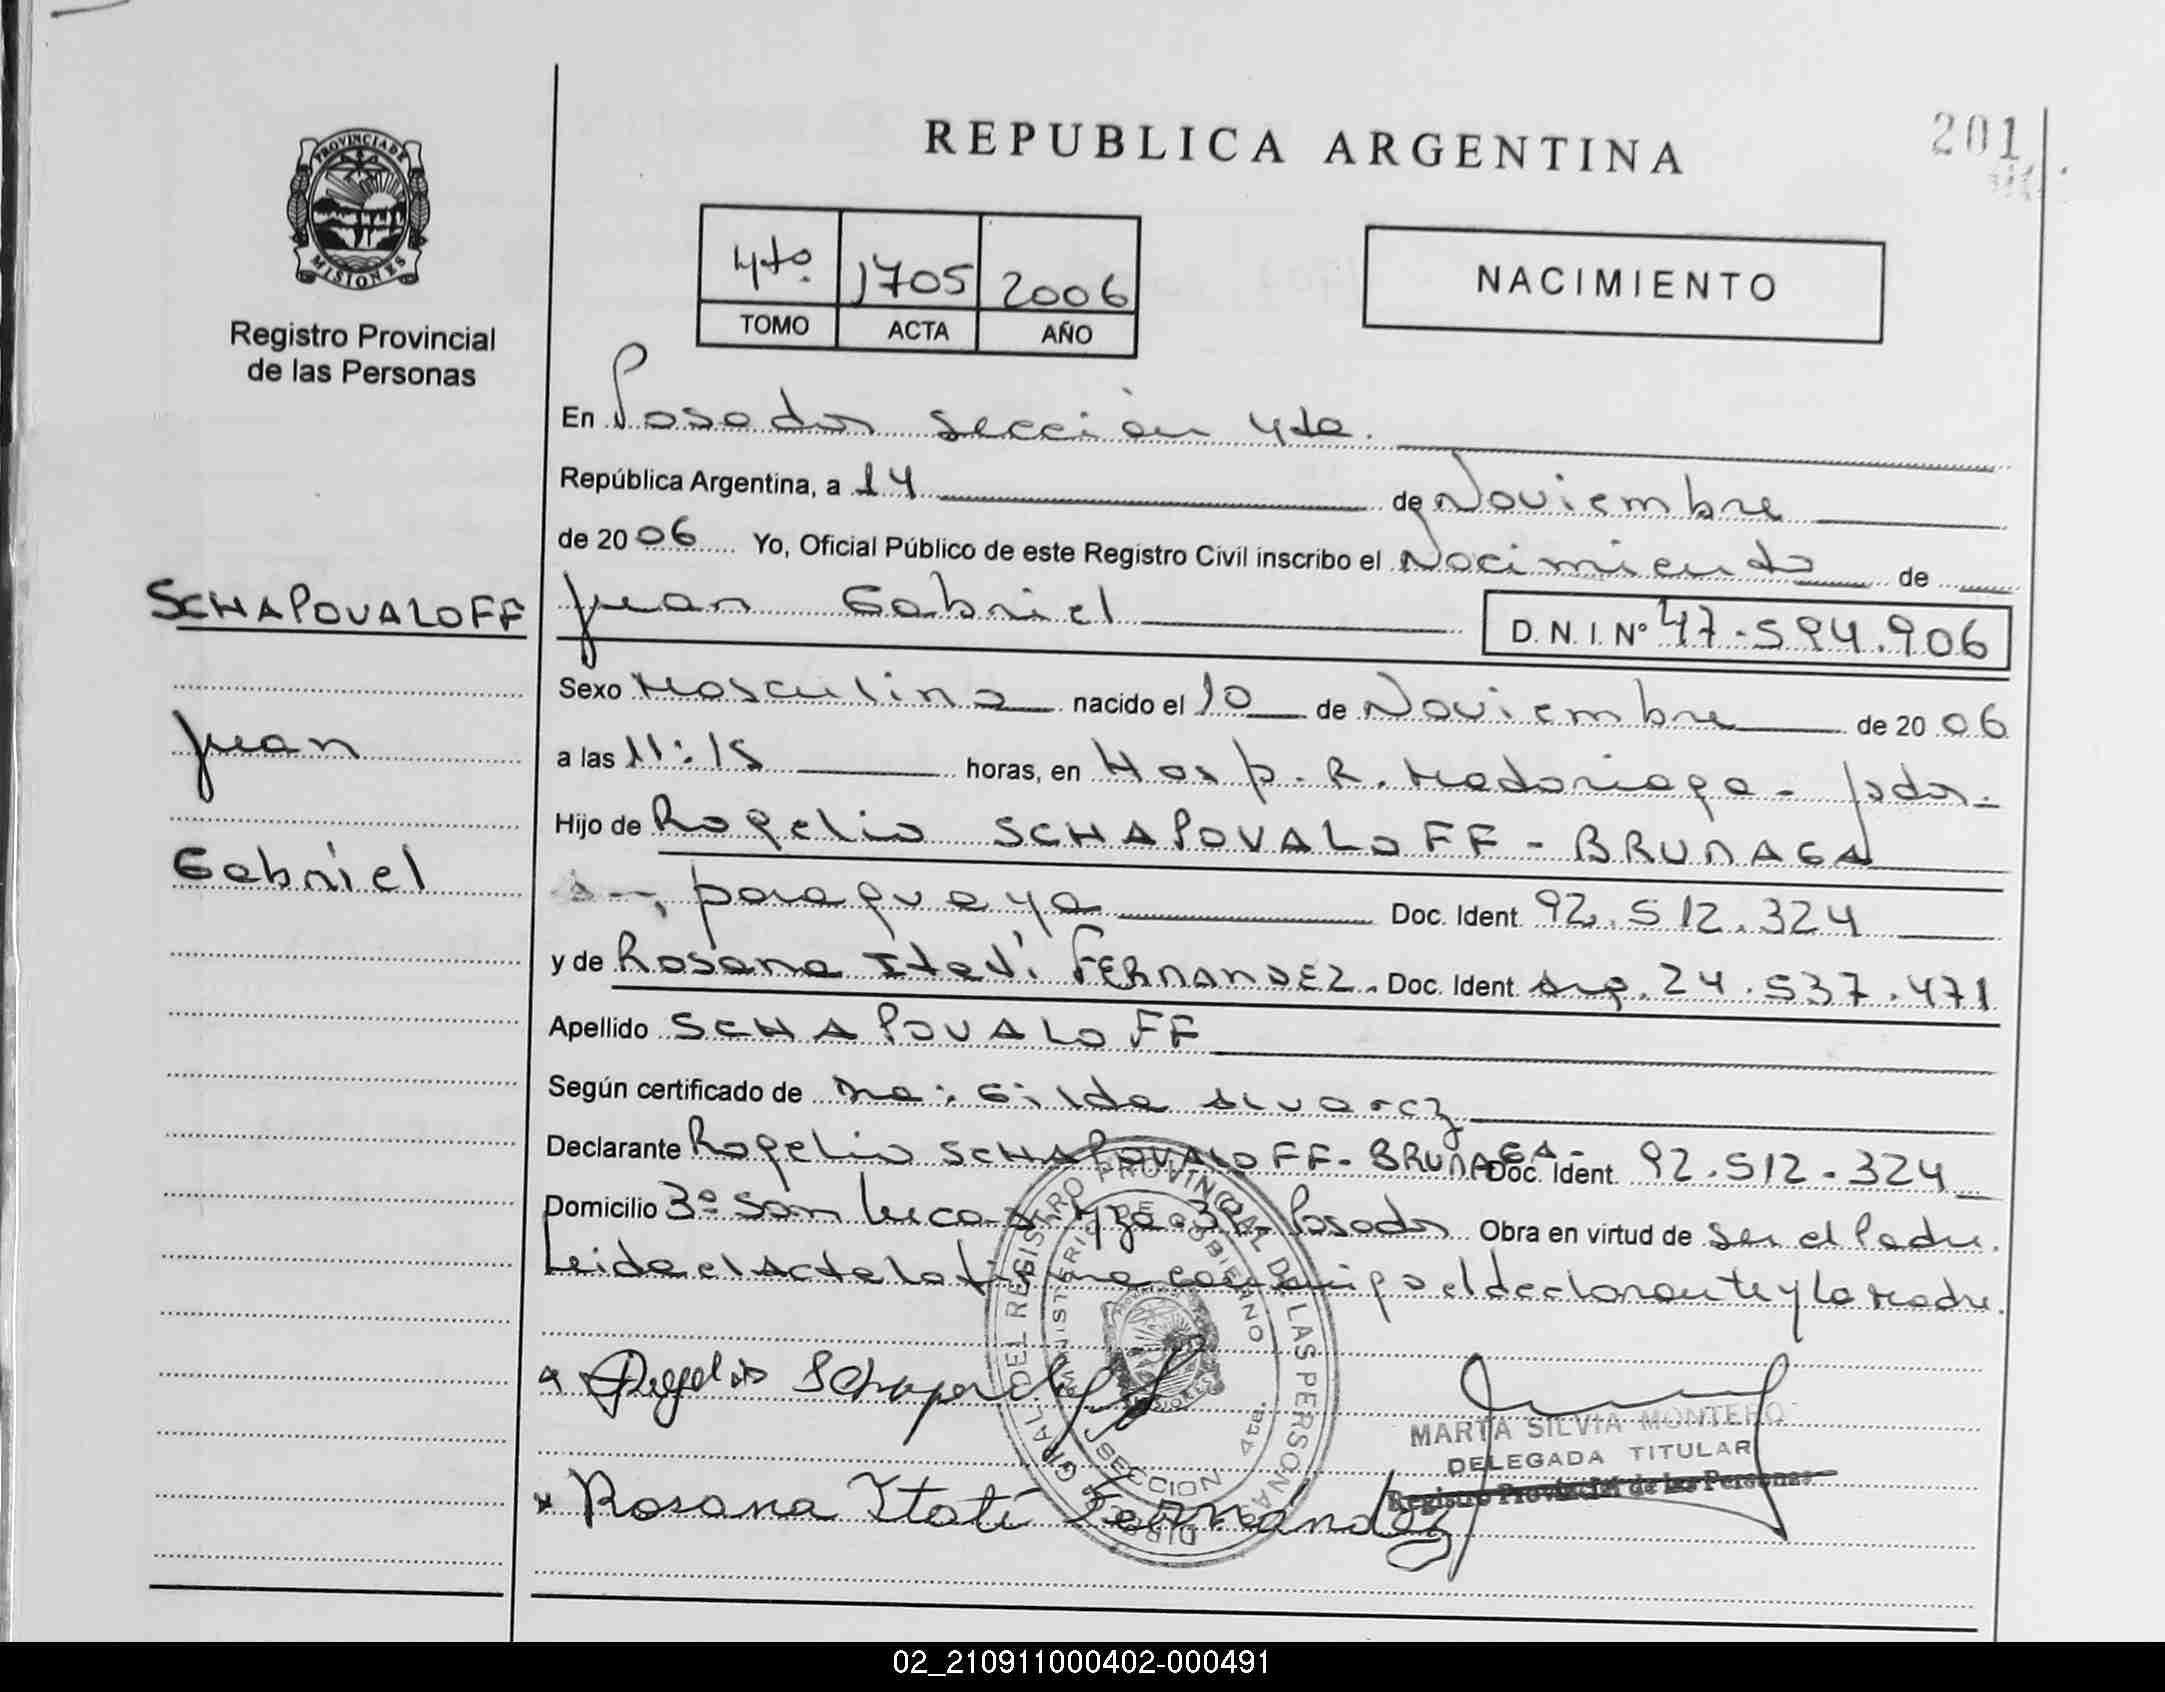 REPUBLICA ARGENTINA
201
PROVINCIA DE MISIONES
Registro Provincial
de las Personas
4to. 1705 2006
TOMO ACTA AÑO
NACIMIENTO
En Posadas sección 4ta.
República Argentina, a 14 de Noviembre
de 2006 Yo, Oficial Público de este Registro Civil inscribo el Nacimiento de
Juan Gabriel D. N. I. Nº 47.594.906
SCHAPOVALOFF
Juan
Gabriel
Sexo Masculino nacido el 10 de Noviembre de 2006
a las 11:15 horas, en Hosp. R. Madariaga - Pdas.
Hijo de Rogelio SCHAPOVALOFF - BRUNAGA
paraguaya Doc. Ident. 92.512.324
y de Rosana Itatí FERNANDEZ. Doc. Ident. Arg. 24.537.471
Apellido SCHAPOVALOFF
Según certificado de Gilda Alvarez
Declarante Rogelio SCHAPOVALOFF - BRUNAGA - Doc. Ident. 92.512.324
Domicilio 3º San Lucas Mza. Posadas Obra en virtud de ser el Padre.
Leida el Acta la firma conmigo el declarante y la Madre.
Rogelio
DIREC. GRAL. DEL REGISTRO PROVINCIAL DE LAS PERSONAS
MINISTERIO DE GOBIERNO
SECCION 4ta.
MARTA SILVIA MONTERO
DELEGADA TITULAR
Registro Provincial de las Personas
Rosana Itatí Fernández
02_210911000402-000491